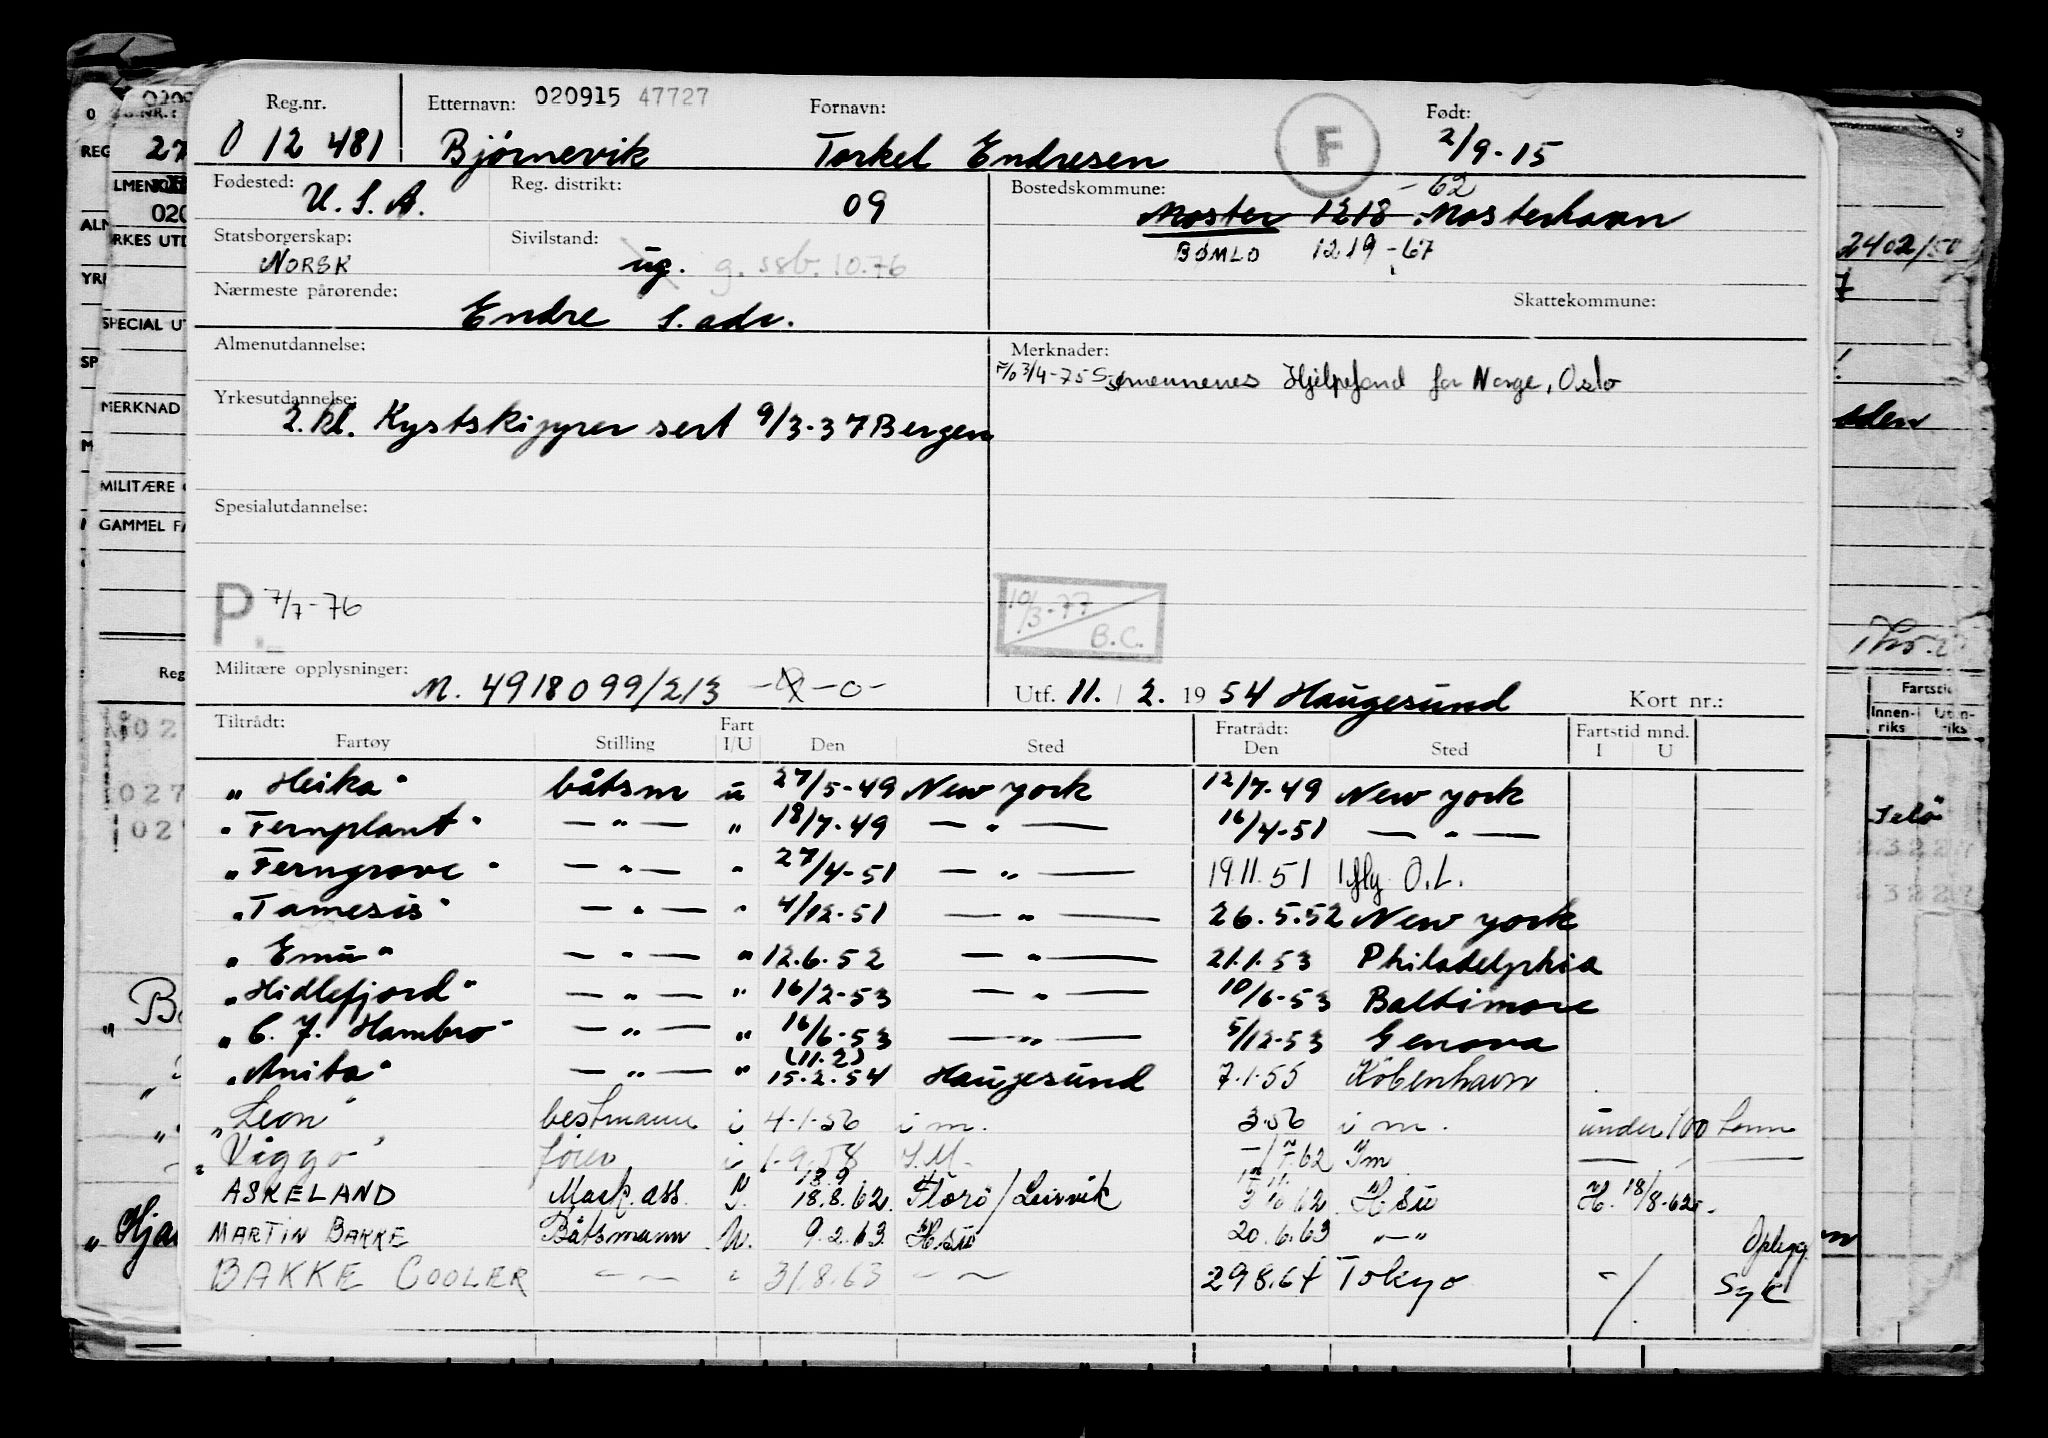 Reg.nr. Etternavn: 020915 47727 Fornavn: F Født:
0 12 481 Bjørnevik Torkel Endresen 2/9-15
Fødested: U.S.A. Reg. distrikt: 09 Bostedskommune: -62
Moster 1218 Mosterhavn
Statsborgerskap: NORSK Sivilstand: ug. g. ssb. 10.76 BØMLO 1219 -67
Nærmeste pårørende: Endre s. adr. Skattekommune:
Almenutdannelse: Merknader:
F/o 3/4-75 Sjømennenes Hjelpefond for Norge, Oslo
Yrkesutdannelse:
2. kl. Kystskipper sert 9/3-37 Bergen
Spesialutdannelse:
P. 7/7-76 10/3-77 B.C.
Militære opplysninger: M. 4918099/213 -o- Utf. 11. / 2. 1954 Haugesund Kort nr.:
Tiltrådt: Fart Fratrådt: Fartstid mnd.
Fartøy Stilling I/U Den Sted Den Sted I U
"Heika" båtsm u 27/5-49 New York 12/7-49 New York
"Fernplant" — " — " 18/7-49 — " — 16/4-51 — " —
"Ferngrove" — " — " 27/4-51 — " — 19 11. 51 O.L.
"Tamesis" — " — " 4/12-51 — " — 26.5.52 New York
"Emu" — " — " 12.6.52 — " — 21.1.53 Philadelphia
"Hidlefjord" — " — " 16/2-53 — " — 10/6-53 Baltimore
"C. J. Hambro" — " — " 16/6-53 — " — 5/12-53 Genova
(11.2)
"Anita" — " — " 15.2.54 Haugesund 7.1.55 København
"Leon" bestmann i 4-1-56 i m. 3.56 i m. under 100 tonn
"Viggo" i 1-9-58 I.M. 7.62 Im
18.9
ASKELAND Mask. ass. 18.8.62 Florø/Leirvik 62 H.su H. 18/8-62
MARTIN BAKKE Båtsmann U. 9.2.63 H.su 20.6.63 — " Oplegg
BAKKE COOLER — " — " 31.8.63 — " — 29 8.64 Tokyo Syk